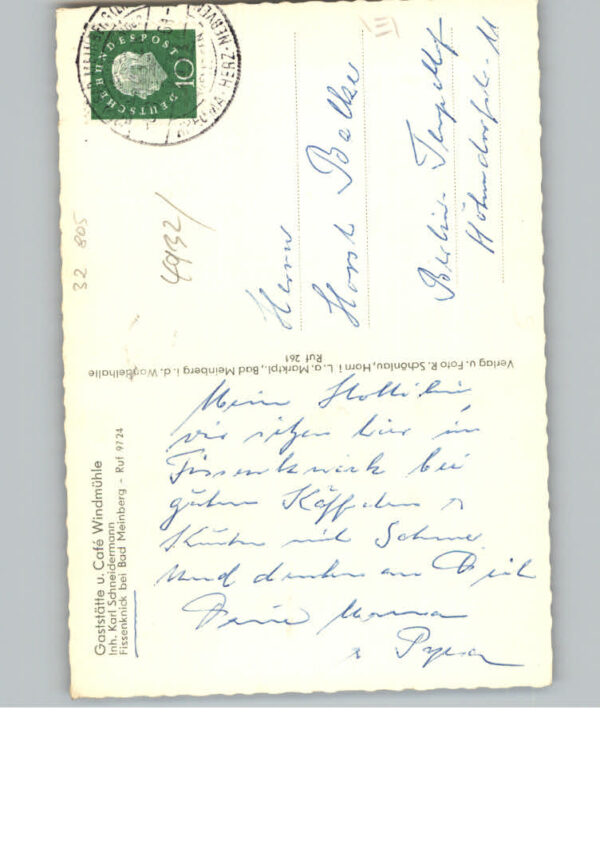 DEUTSCHE BUNDESPOST
10
HERZ- NERVEN
32 805
4932/
Herrn
Horst Balke
Berlin-Tempelhof
Verlag u. Foto R. Schönlau, Horn i. L. a. Marktpl., Bad Meinberg i. d. Wandelhalle
Ruf 261
Gaststätte u. Café Windmühle
Inh. Karl Schneidermann
Fissenknick bei Bad Meinberg - Ruf 9724
Mein
wir sitzen hier in
Fissenknick bei
guten Käffchen
Kuchen mit Sahne
und denken an Dich
Deine Mama